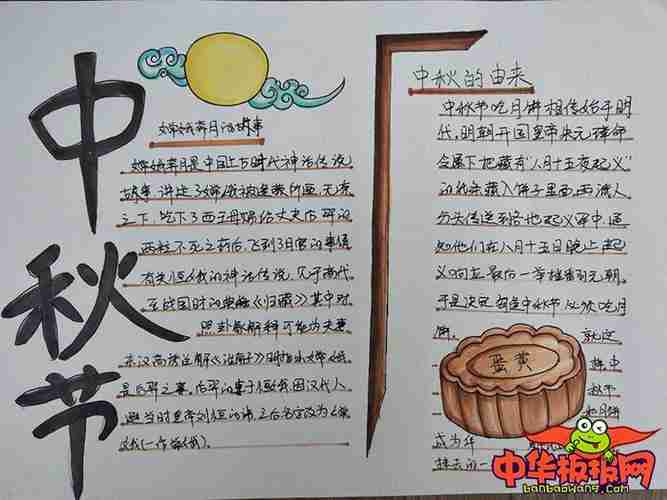 中秋节
嫦娥奔月的故事
嫦娥奔月是中国上古时代神话传说
故事,讲述了嫦娥被逢蒙所逼,无奈
之下,吃下了西王母赐给丈夫后羿的
两粒不死之药后,飞到了月宫的事情
有关嫦娥的神话传说,
《归藏》其中对
卦象解释可能为夫妻
东汉高诱注解《淮南子》时指出嫦娥
是后羿之妻,
避当时皇帝刘恒的讳,
中秋的由来
中秋节吃月饼相传始于明
代,明朝开国皇帝朱元璋命
令属下把藏有"八月十五夜起义"
的纸条藏入饼子里面,再派人
分头传送到各地起义军中,通
知他们在八月十五日晚上起
义响应,最后一举推翻了元朝。
于是决定每逢中秋节
饼。 就这
样,中
秋节
和月饼
成为
蛋黄
中华板报网
banbaowang.com